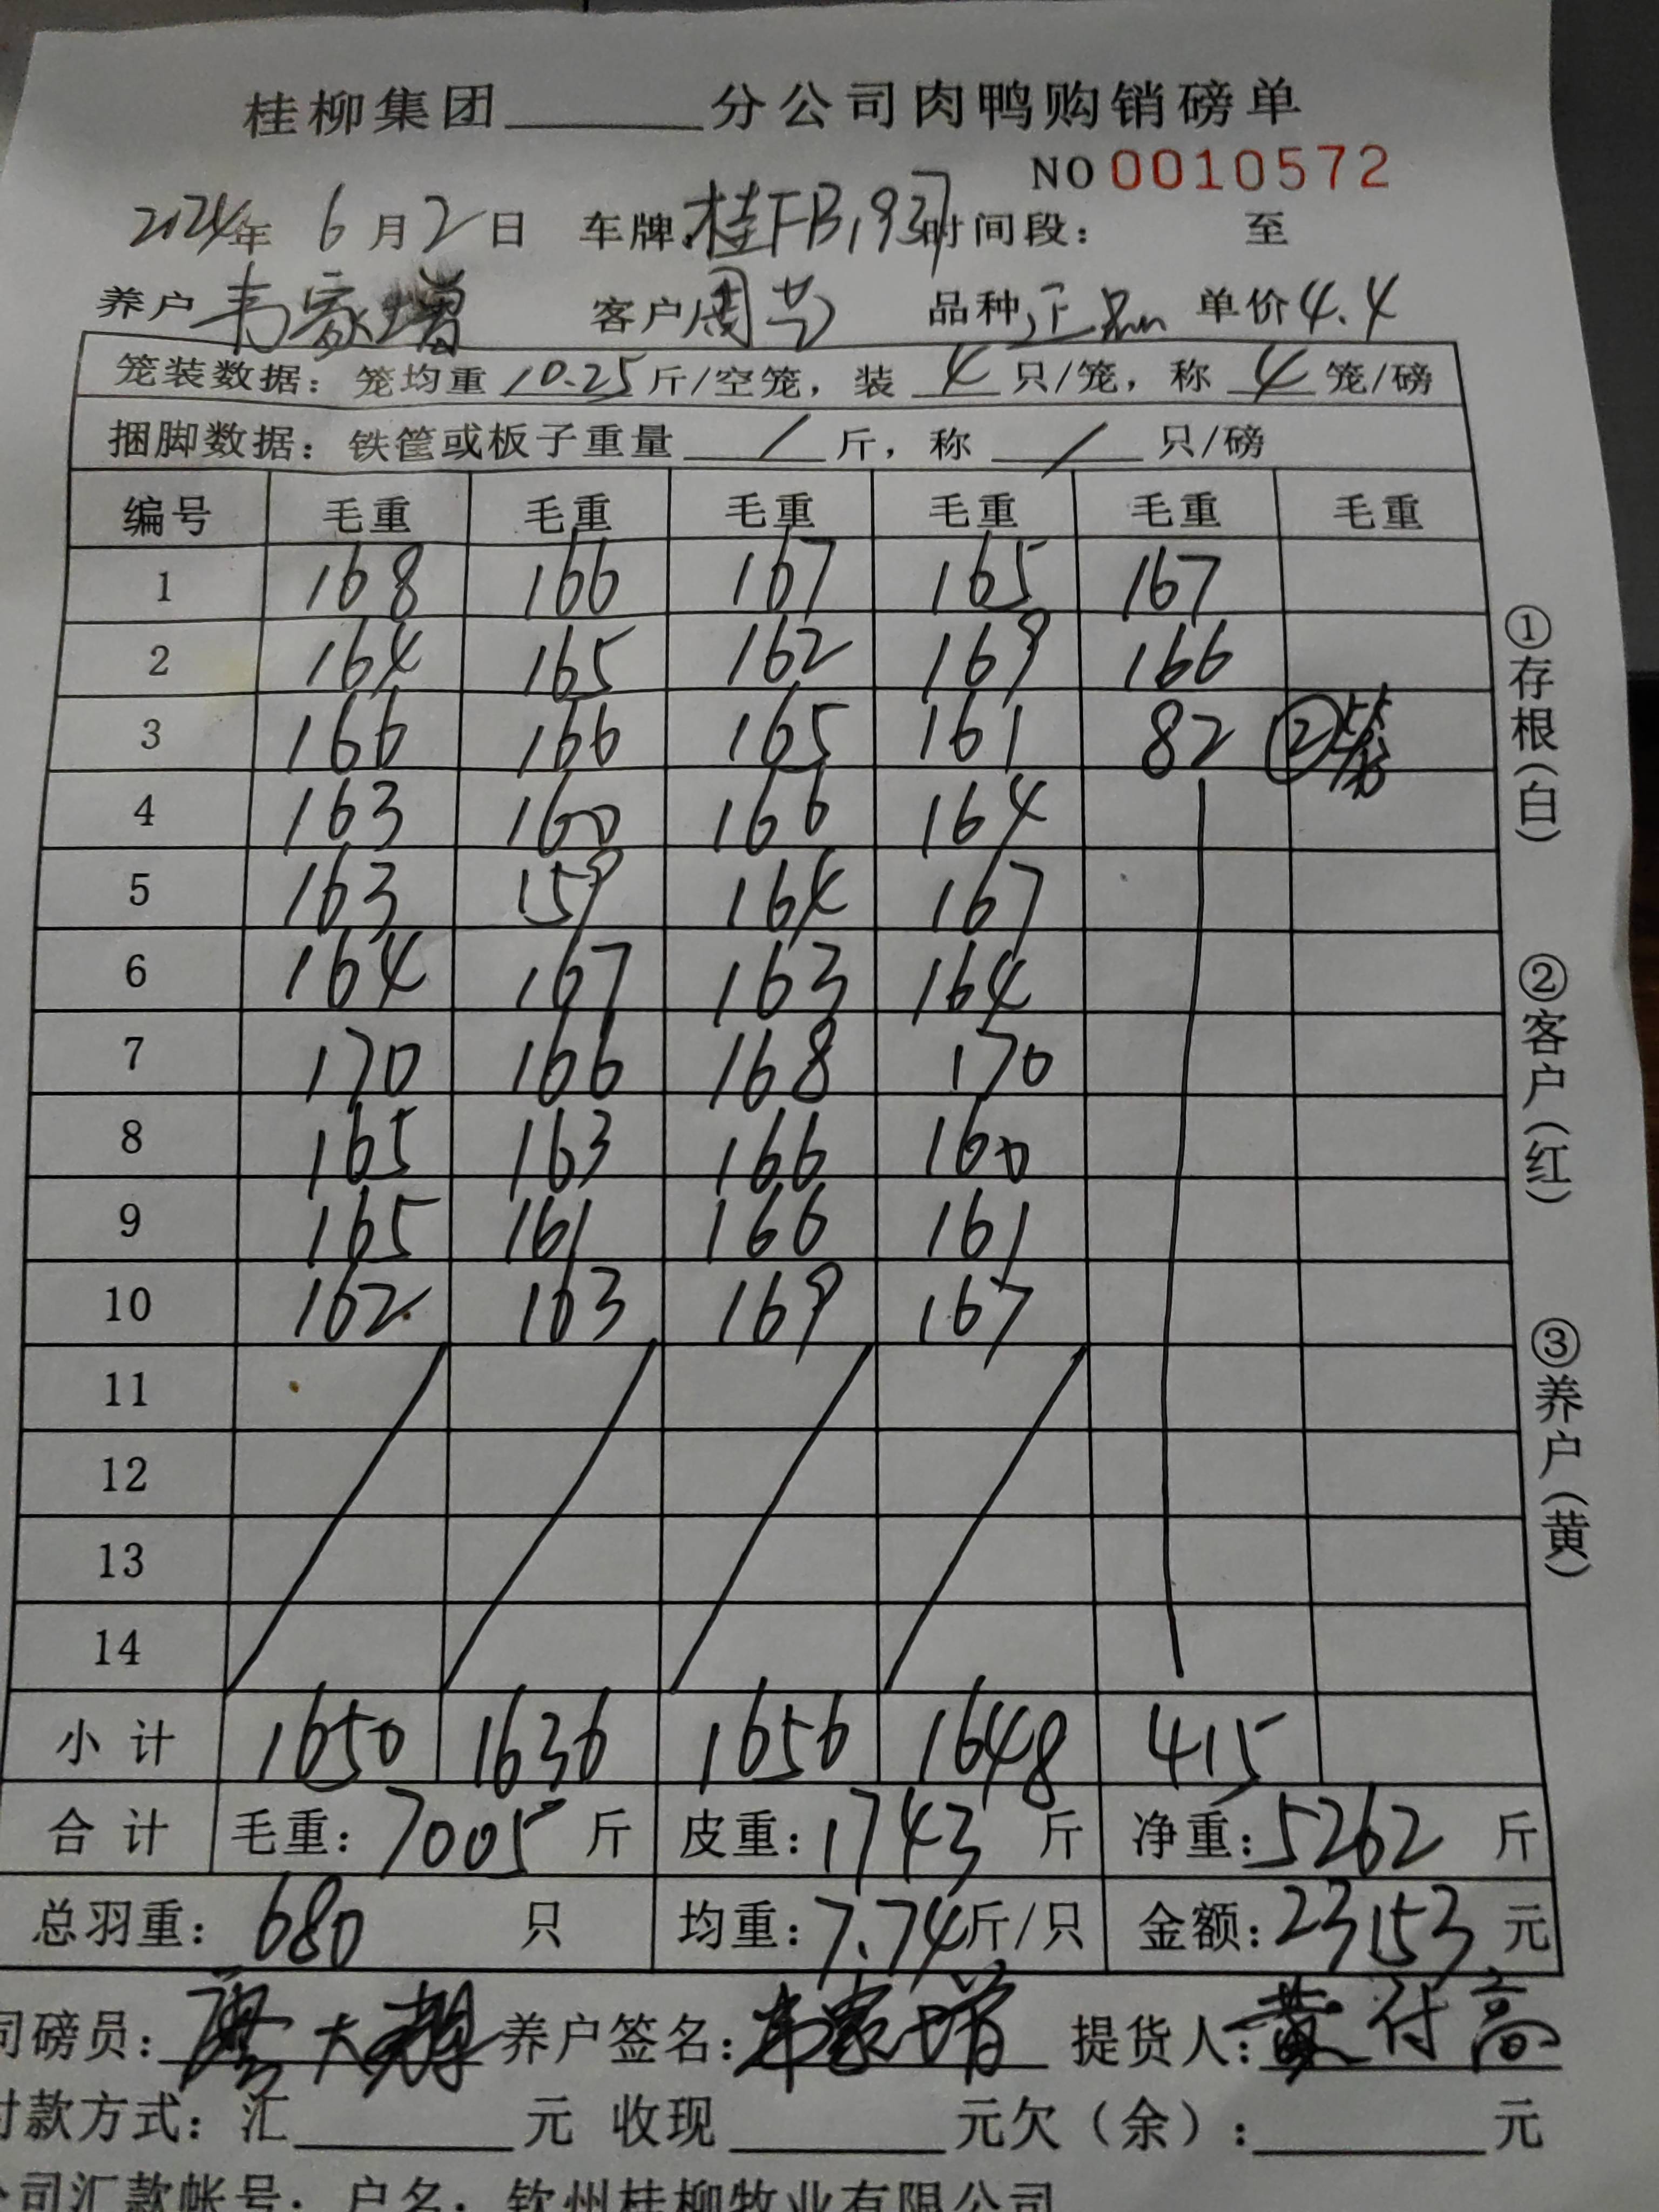 桂柳集团______分公司肉鸭购销磅单
NO 0010572
2024年 6月2日 车牌:桂FB1937 时间段: 至
养户 韦家增 客户 周芳 品种 正品 单价 4.4
笼装数据: 笼均重 10.25 斤/空笼, 装 4 只/笼, 称 4 笼/磅
捆脚数据: 铁筐或板子重量 / 斤, 称 / 只/磅
编号 毛重 毛重 毛重 毛重 毛重 毛重
1 168 166 167 165 167
2 164 165 162 169 166
3 166 166 165 161 82 ②
4 163 160 166 164
5 163 159 164 167
6 164 167 163 164
7 170 166 168 170
8 165 163 166 160
9 165 161 166 161
10 162 163 169 167
11
12
13
14
小计 1650 1636 1656 1648 415
合计 毛重: 7005 斤 皮重: 1743 斤 净重: 5262 斤
总羽重: 680 只 均重: 7.74 斤/只 金额: 23153 元
司磅员: 大 养户签名: 韦家增 提货人: 黄付高
付款方式: 汇______元 收现______元欠(余):______元
公司汇款帐号: 户名: 钦州桂柳牧业有限公司
①存根(白) ②客户(红) ③养户(黄)